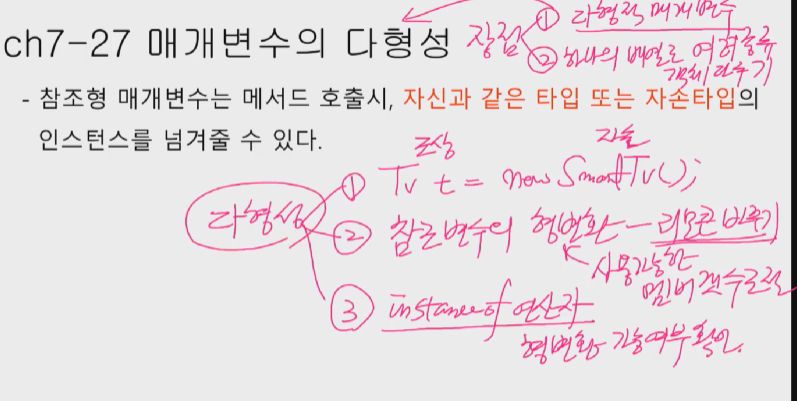 ch7-27 매개변수의 다형성
장점 ① 다형적 매개변수
② 하나의 배열로 여러종류
객체 다루기
- 참조형 매개변수는 메서드 호출시, 자신과 같은 타입 또는 자손타입의
인스턴스를 넘겨줄 수 있다.
조상 자손
다형성 ① Tv t = new SmartTv();
② 참조변수의 형변환 - 리모콘 바꾸기
사용가능한
멤버 갯수조절
③ instanceof 연산자
형변환 가능여부 확인.